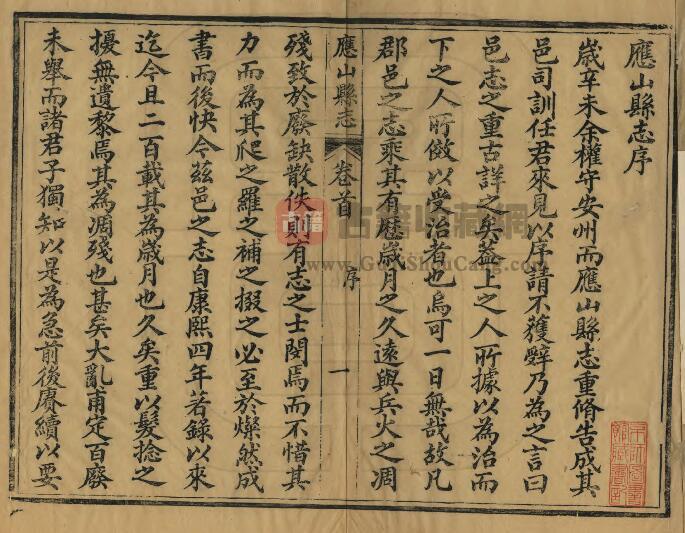 應山縣志序
歲辛未余權守安州而應山縣志重脩告成其
邑司訓任君來見以序請不獲辭乃為之言曰
邑志之重古詳之矣蓋上之人所據以為治而
下之人所倣以受治者也烏可一日無哉故凡
郡邑之志乘其有歷歲月之久遠與兵火之凋
應山縣志 卷首 序 一
殘致於廢缺散佚則有志之士閔焉而不惜其
力而為其爬之羅之補之掇之必至於燦然成
書而後快今茲邑之志自康熙四年若錄以來
迄今且二百載其為歲月也久矣重以髮捻之
擾無遺黎焉其為凋殘也甚矣大亂甫定百廢
未舉而諸君子獨知以是為急前後賡續以要
古籍
古籍收藏網
www.GuJiShouCang.com